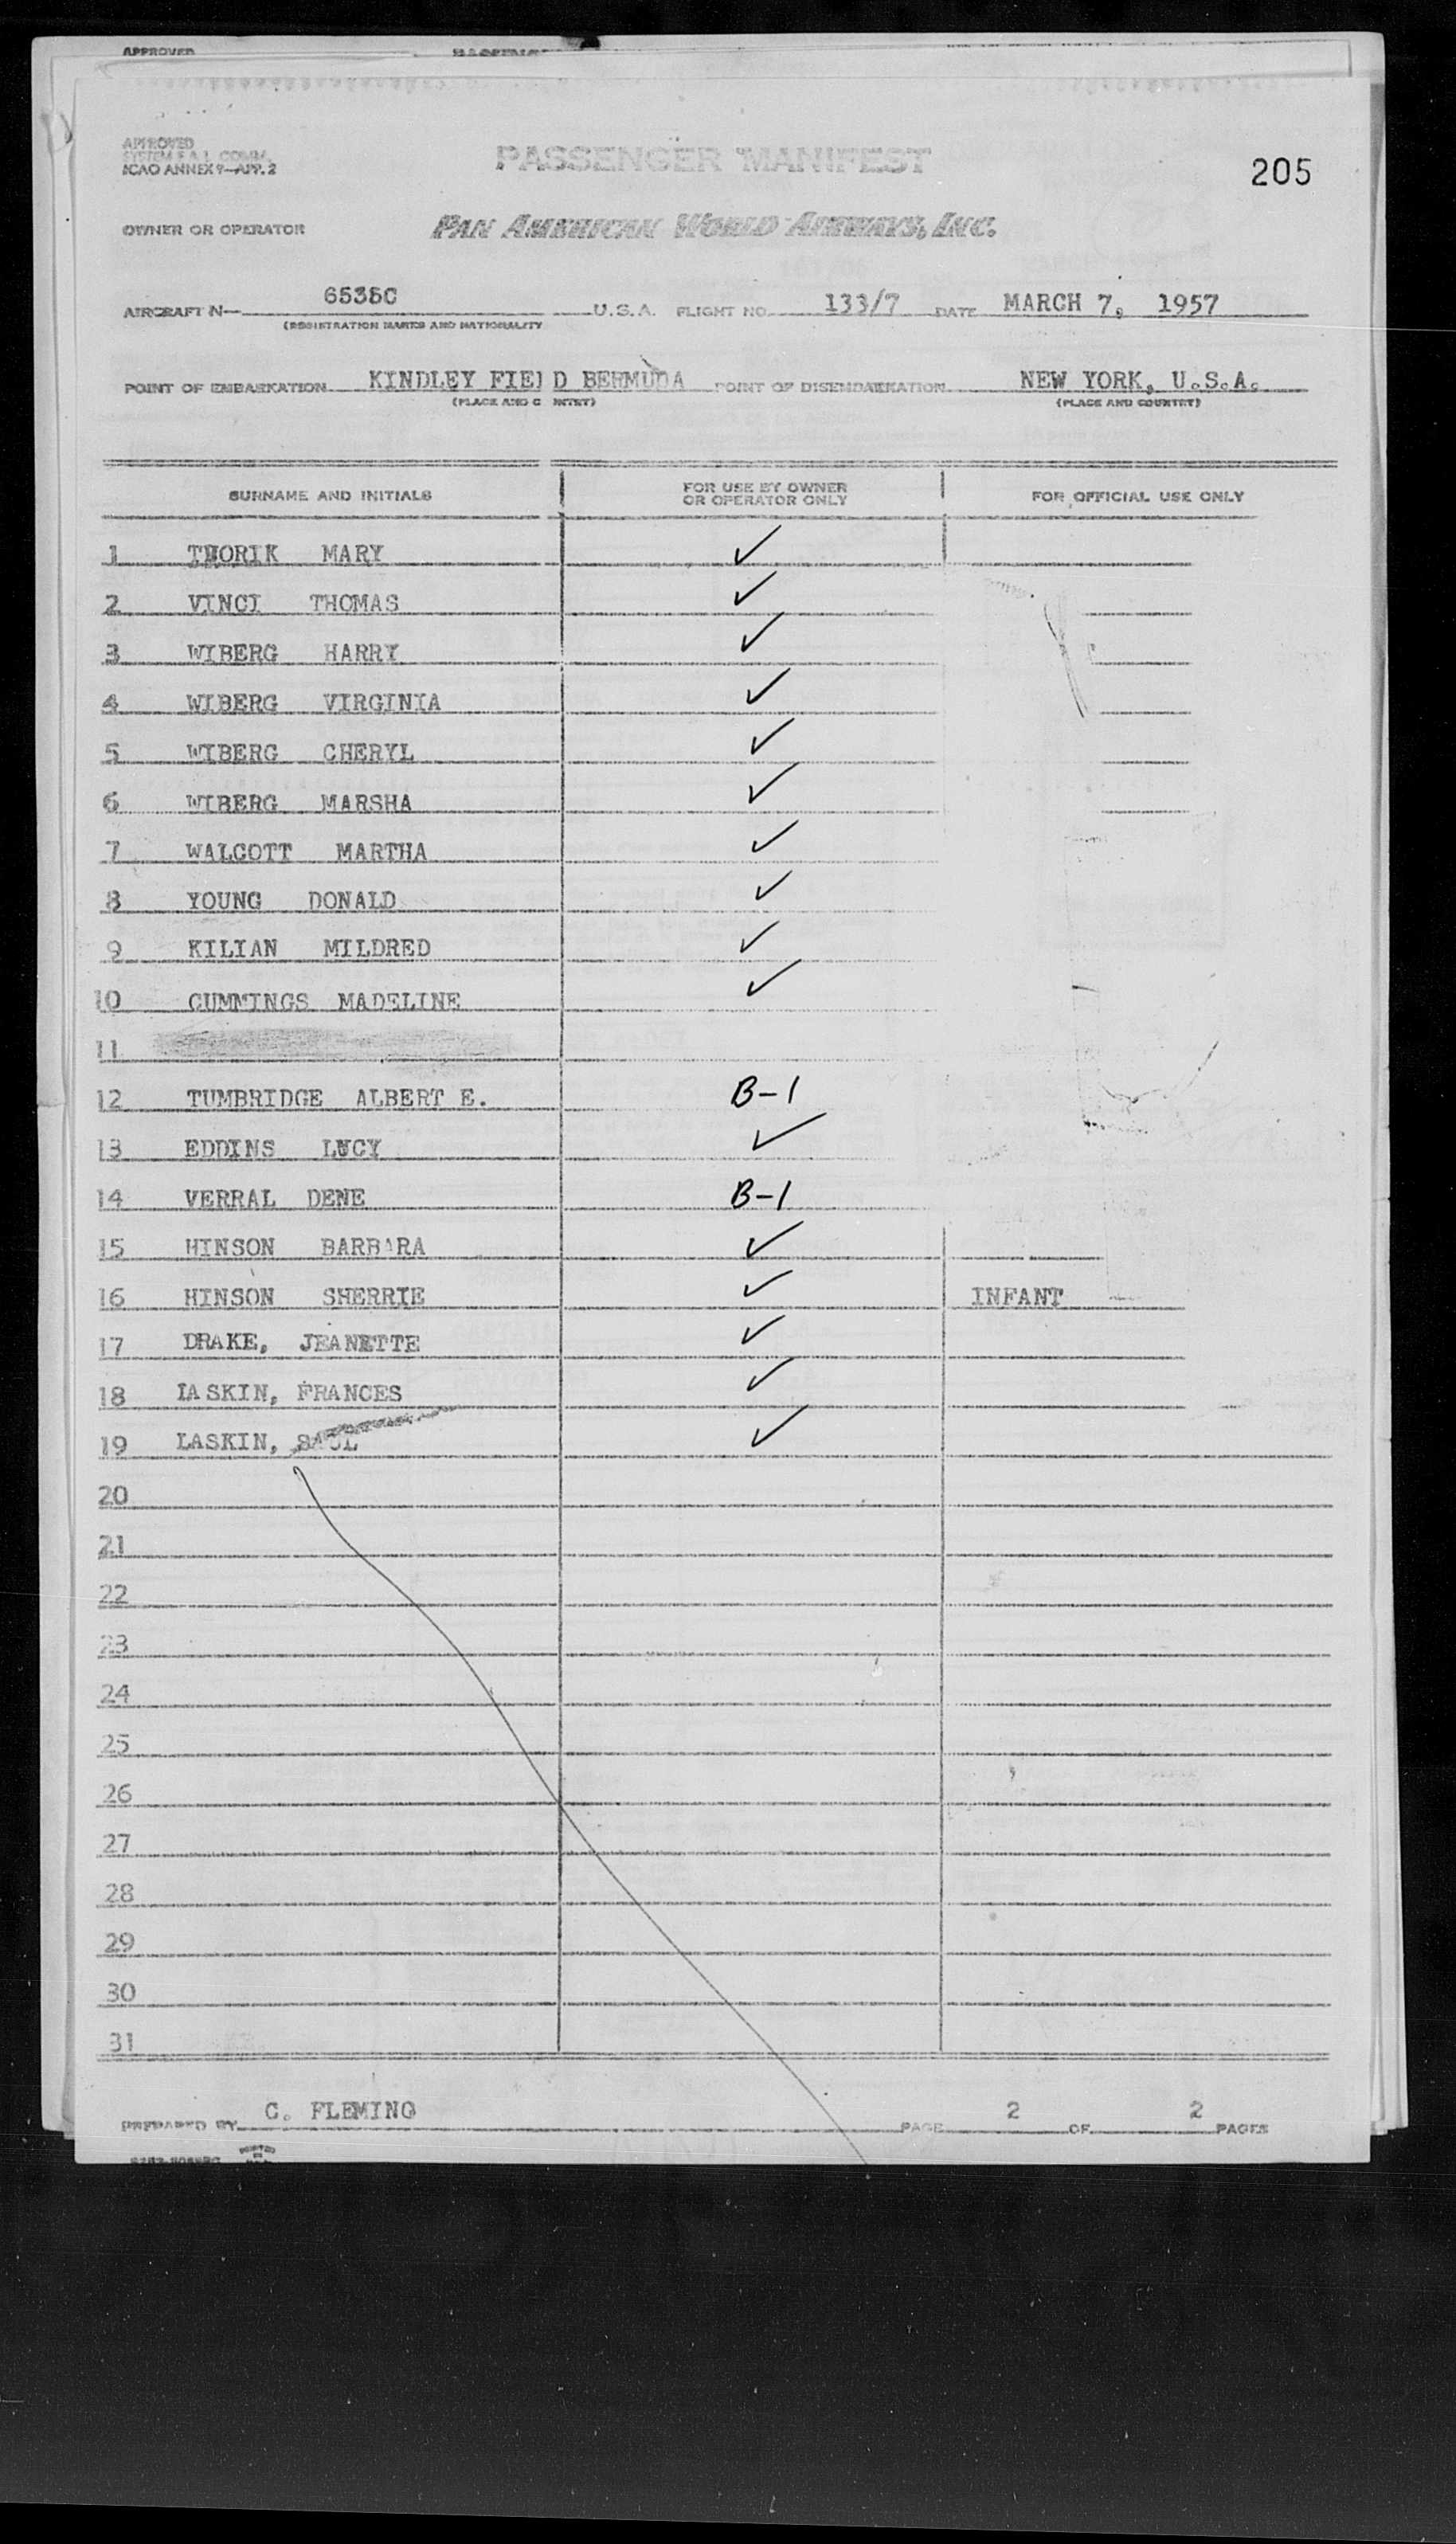 APPROVED
APPROVED
SYSTEM F.A.L. COMM.
ICAO ANNEX 9—APP. 2
PASSENGER MANIFEST
205
OWNER OR OPERATOR PAN AMERICAN WORLD AIRWAYS, INC.
AIRCRAFT N— 6535C U.S.A. FLIGHT NO. 133/7 DATE MARCH 7, 1957
(REGISTRATION MARKS AND NATIONALITY
POINT OF EMBARKATION KINDLEY FIELD BERMUDA POINT OF DISEMBARKATION NEW YORK, U.S.A.
(PLACE AND C NTRY) (PLACE AND COUNTRY)
SURNAME AND INITIALS FOR USE BY OWNER OR OPERATOR ONLY FOR OFFICIAL USE ONLY
1 THORIK MARY ✓
2 VINCI THOMAS ✓
3 WIBERG HARRY ✓
4 WIBERG VIRGINIA ✓
5 WIBERG CHERYL ✓
6 WIBERG MARSHA ✓
7 WALCOTT MARTHA ✓
8 YOUNG DONALD ✓
9 KILIAN MILDRED ✓
10 CUMMINGS MADELINE ✓
11
12 TUMBRIDGE ALBERT E. B-1
13 EDDINS LUCY ✓
14 VERRAL DENE B-1
15 HINSON BARBARA ✓
16 HINSON SHERRIE ✓ INFANT
17 DRAKE, JEANETTE ✓
18 LASKIN, FRANCES ✓
19 LASKIN, SAUL ✓
20
21
22
23
24
25
26
27
28
29
30
31
PREPARED BY C. FLEMING PAGE 2 OF 2 PAGES